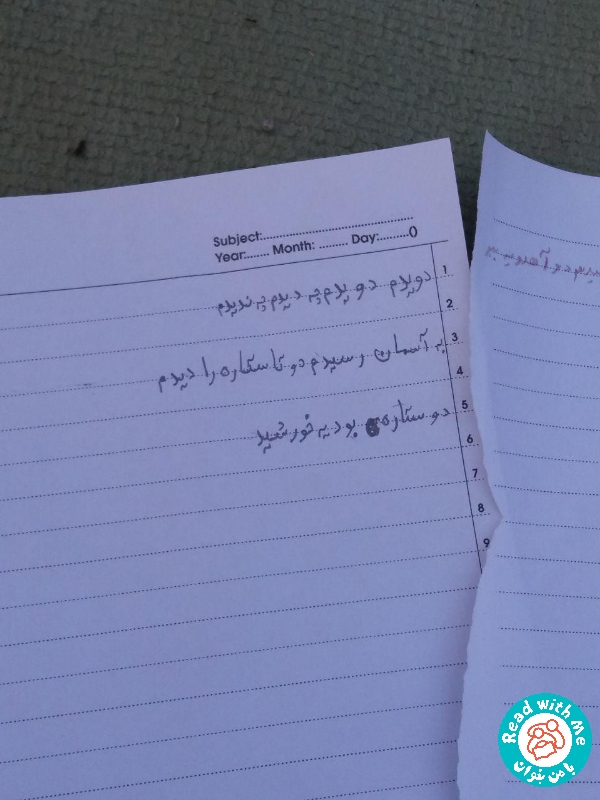 Subject:
Year: Month: Day: 0
1 دویدم دو یدم چه دیدم چه ندیدم
2
3 به آسمان رسیدم دو تا ستاره را دیدم
4
5 دو ستاره بود یه خورشید
6
7
8
9
Read with Me
با من بخوان